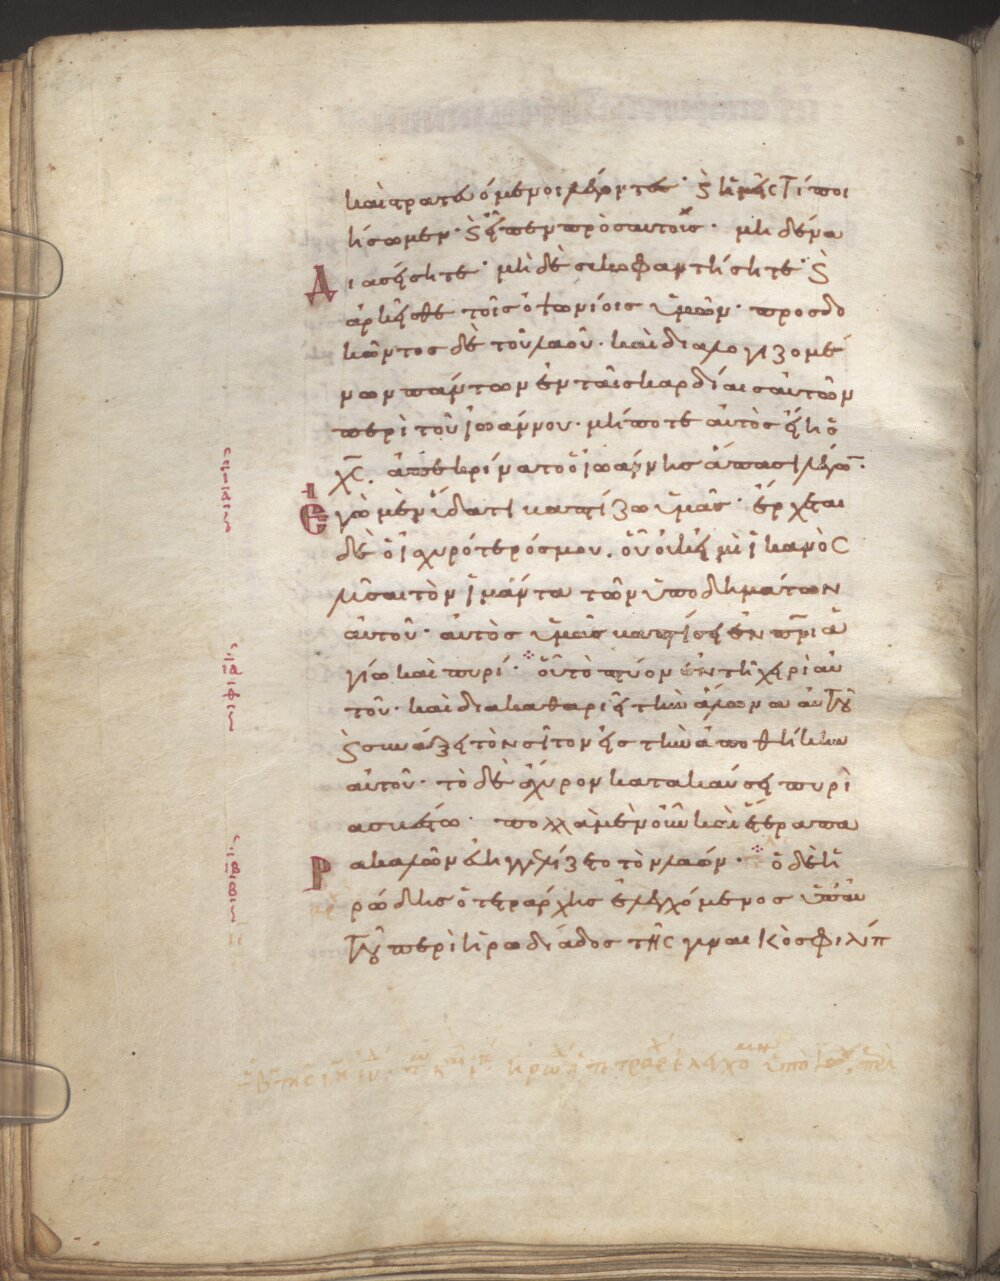 καὶ στρατευόμενοι λέγοντες· ϗ ἡμεῖς τί ποι
ήσωμεν· ϗ εἶπεν πρὸς αυτοὺς· μὴδένα
Διασείσητε· μὴ δὲ συκοφαντήσητε· ϗ
ἀρκεῖσθε τοῖς ὀψωνίοις ὑμῶν· προσδο
κῶντος δὲ τοῦ λαοῦ· καὶ διαλογιζομέ
νων πάντων ἐν ταῖς καρδίαις αὐτῶν
περὶ τοῦ ἰωάννου· μήποτε αὐτὸς εἴη ὁ
χς· ἀπεκρίνατο ὁ ἰωάννης ἅπασι λέγω·
Εγὼ μὲν ὕδατι βαπτίζω ὑμᾶς· ἔρχεται
δὲ ὁ ἰσχυρότερός μου· οὗ οὐκ εἰμὶ ἱκανὸς
λῦσαι τὸν ἱμάντα τῶν ὑποδημάτων
αὐτοῦ· αὐτὸς ὑμᾶς βαπτίσει ἐν πνι ἁ
γίω καὶ πυρί· οὗ τὸ πτύον ἐν τῆ χειρὶ αὐ
τοῦ· καὶ διακαθαριεῖ τὴν ἅλωνα αὐτοῦ
ϗ συνάξει τὸν σῖτον εἰς τὴν ἀποθήκην
αὐτοῦ· τὸ δὲ ἄχυρον κατακαύσει πυρὶ
ασβέστω· πολλὰ μὲν οὖν καὶ ἕτερα πα
Ρακαλῶν εὐηγγελίζετο τὸν λαόν· ὁ δὲ ἡ
ρώδης ὁ τετράρχης ἐλεγχόμενος ὑπ' αὐ
τοῦ περὶ ἡρωδιάδος τῆς γυναικὸς φιλίπ